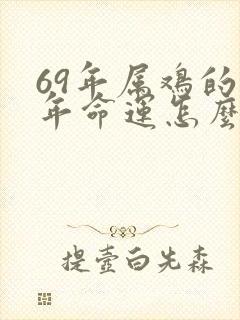 69年属鸡的
年命运怎麽
提壶白先森